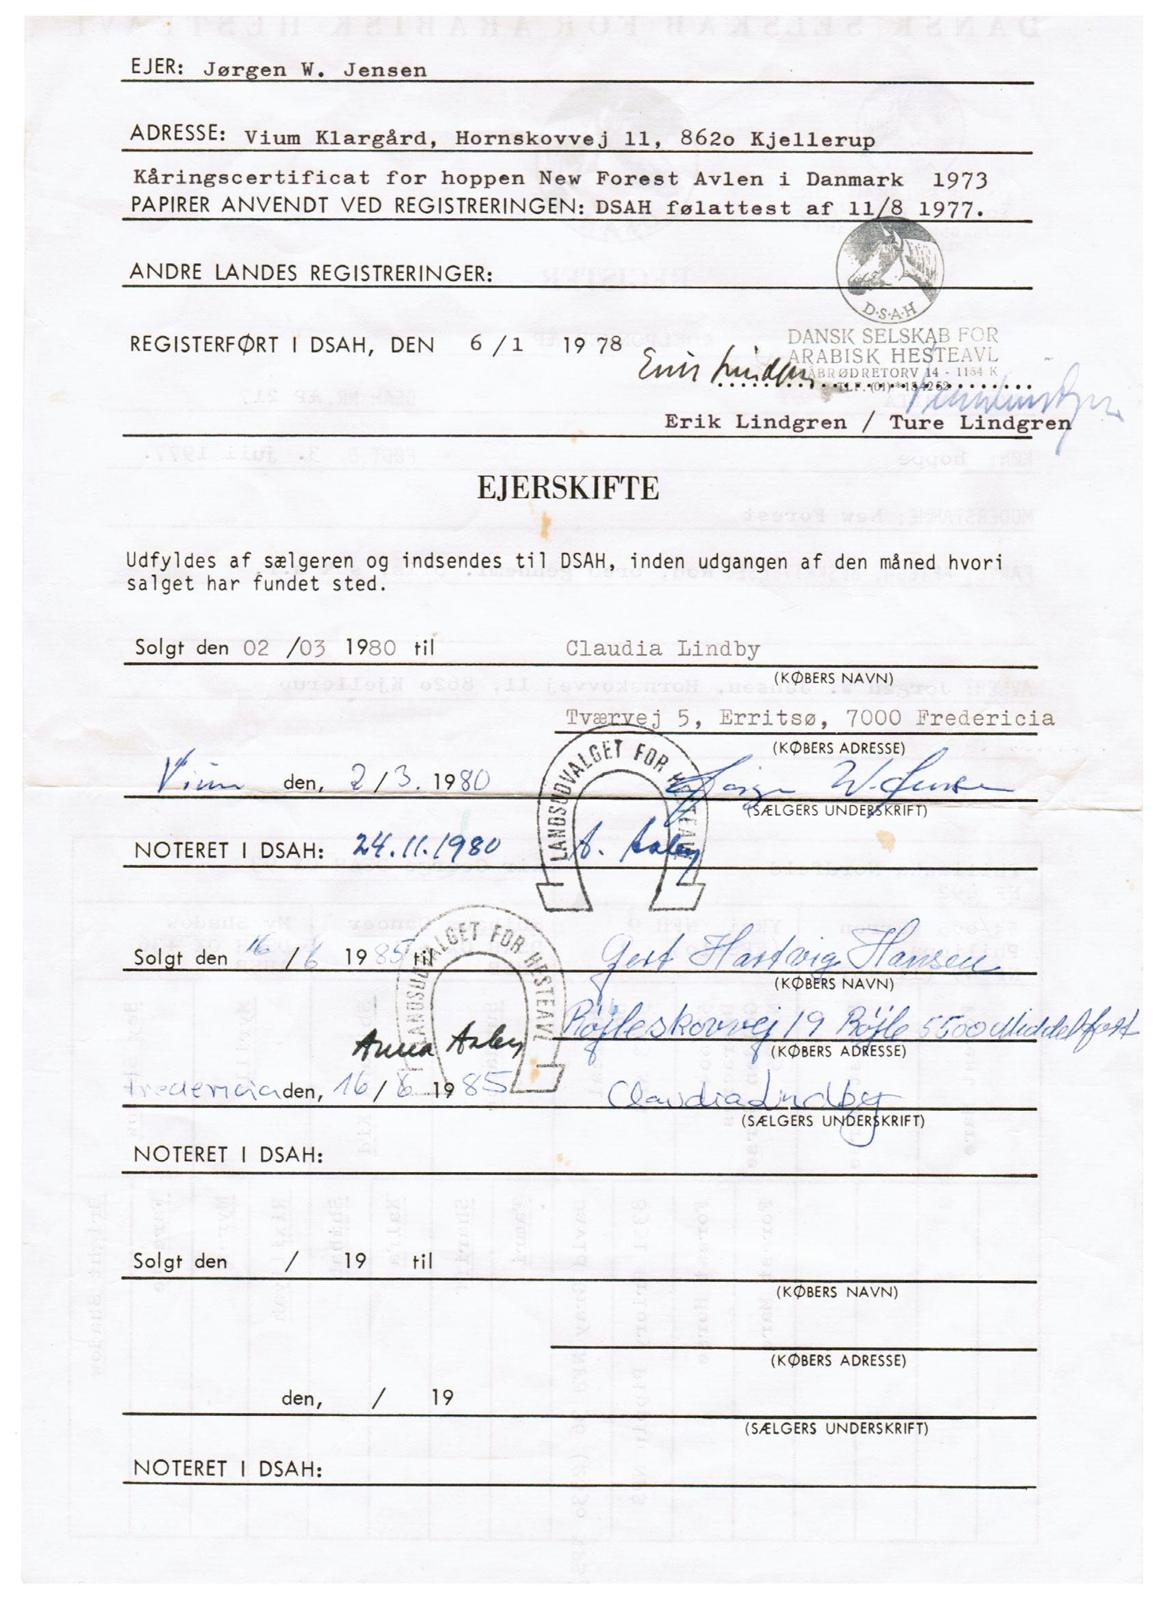 EJER: Jørgen W. Jensen
ADRESSE: Vium Klargård, Hornskovvej 11, 862o Kjellerup
Kåringscertificat for hoppen New Forest Avlen i Danmark 1973
PAPIRER ANVENDT VED REGISTRERINGEN: DSAH følattest af 11/8 1977.
ANDRE LANDES REGISTRERINGER:
D·S·A·H
DANSK SELSKAB FOR
REGISTERFØRT I DSAH, DEN 6/1 1978
ARABISK HESTEAVL
GRÅBRØDRETORV 14 - 1154 K
TLF. (01) * 154262
Erik Lindgren
Erik Lindgren / Ture Lindgren
EJERSKIFTE
Udfyldes af sælgeren og indsendes til DSAH, inden udgangen af den måned hvori
salget har fundet sted.
Solgt den 02 /03 1980 til Claudia Lindby
(KØBERS NAVN)
Tværvej 5, Erritsø, 7000 Fredericia
(KØBERS ADRESSE)
LANDSUDVALGET FOR HESTEAVL
Vium den, 2/3. 1980 Jørgen W. Jensen
(SÆLGERS UNDERSKRIFT)
NOTERET I DSAH: 24.11.1980 A. Aaby
LANDSUDVALGET FOR HESTEAVL
Solgt den 16/6 1985 til Gert Hartvig Hansen
(KØBERS NAVN)
Røjleskovvej 19 Røjle 5500 Middelfart
Anna Aaby
(KØBERS ADRESSE)
Fredericia den, 16/6 1985 Claudia Lindby
(SÆLGERS UNDERSKRIFT)
NOTERET I DSAH:
Solgt den / 19 til
(KØBERS NAVN)
(KØBERS ADRESSE)
den, / 19
(SÆLGERS UNDERSKRIFT)
NOTERET I DSAH: